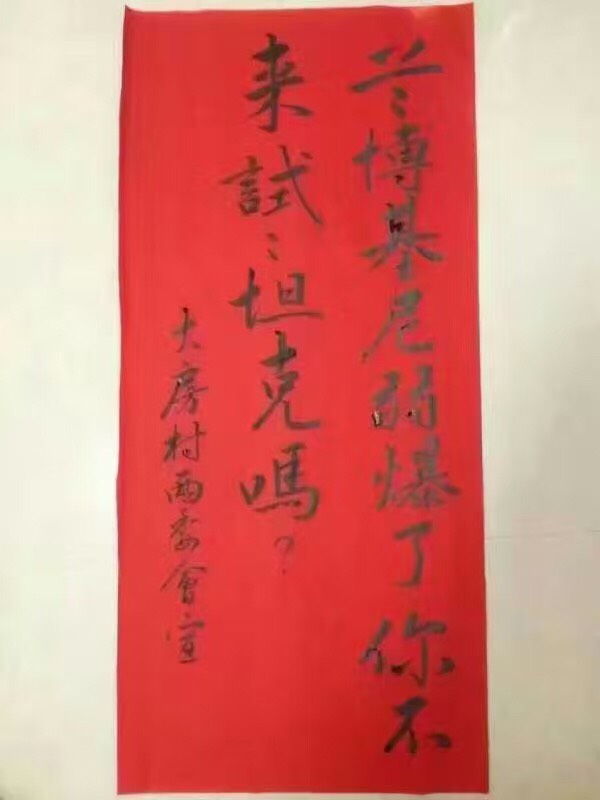 兰博基尼弱爆了你不
来試〻坦克嗎?
大房村两委會宣